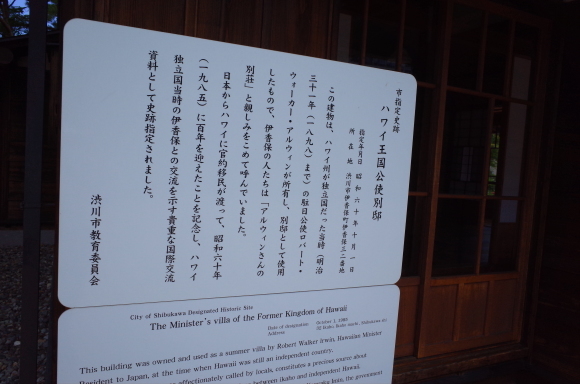 市指定史跡
ハワイ王国公使別邸
指定年月日 昭和六十年十月一日
所在地 渋川市伊香保町伊香保三二番地
この建物は、ハワイ州が独立国だった当時(明治
三十一年(一八九八)まで)の駐日公使ロバート・
ウォーカー・アルウィンが所有し、別邸として使用
したもので、伊香保の人たちは「アルウィンさんの
別荘」と親しみをこめて呼んでいました。
日本からハワイに官約移民が渡って、昭和六十年
(一九八五)に百年を迎えたことを記念し、ハワイ
独立国当時の伊香保との交流を示す貴重な国際交流
資料として史跡指定されました。
渋川市教育委員会
City of Shibukawa Designated Historic Site
The Minister's villa of the Former Kingdom of Hawaii
Date of designation October 1, 1985
Address 32 Ikaho, Ikaho
This building was owned and used as a summer villa by Robert Walker Irwin, Hawaiian Minister
Resident to Japan, at the time when Hawaii was still an independent country.
affectionately called by locals, constitutes a precious source about
between Ikaho and independent Hawaii.
the government